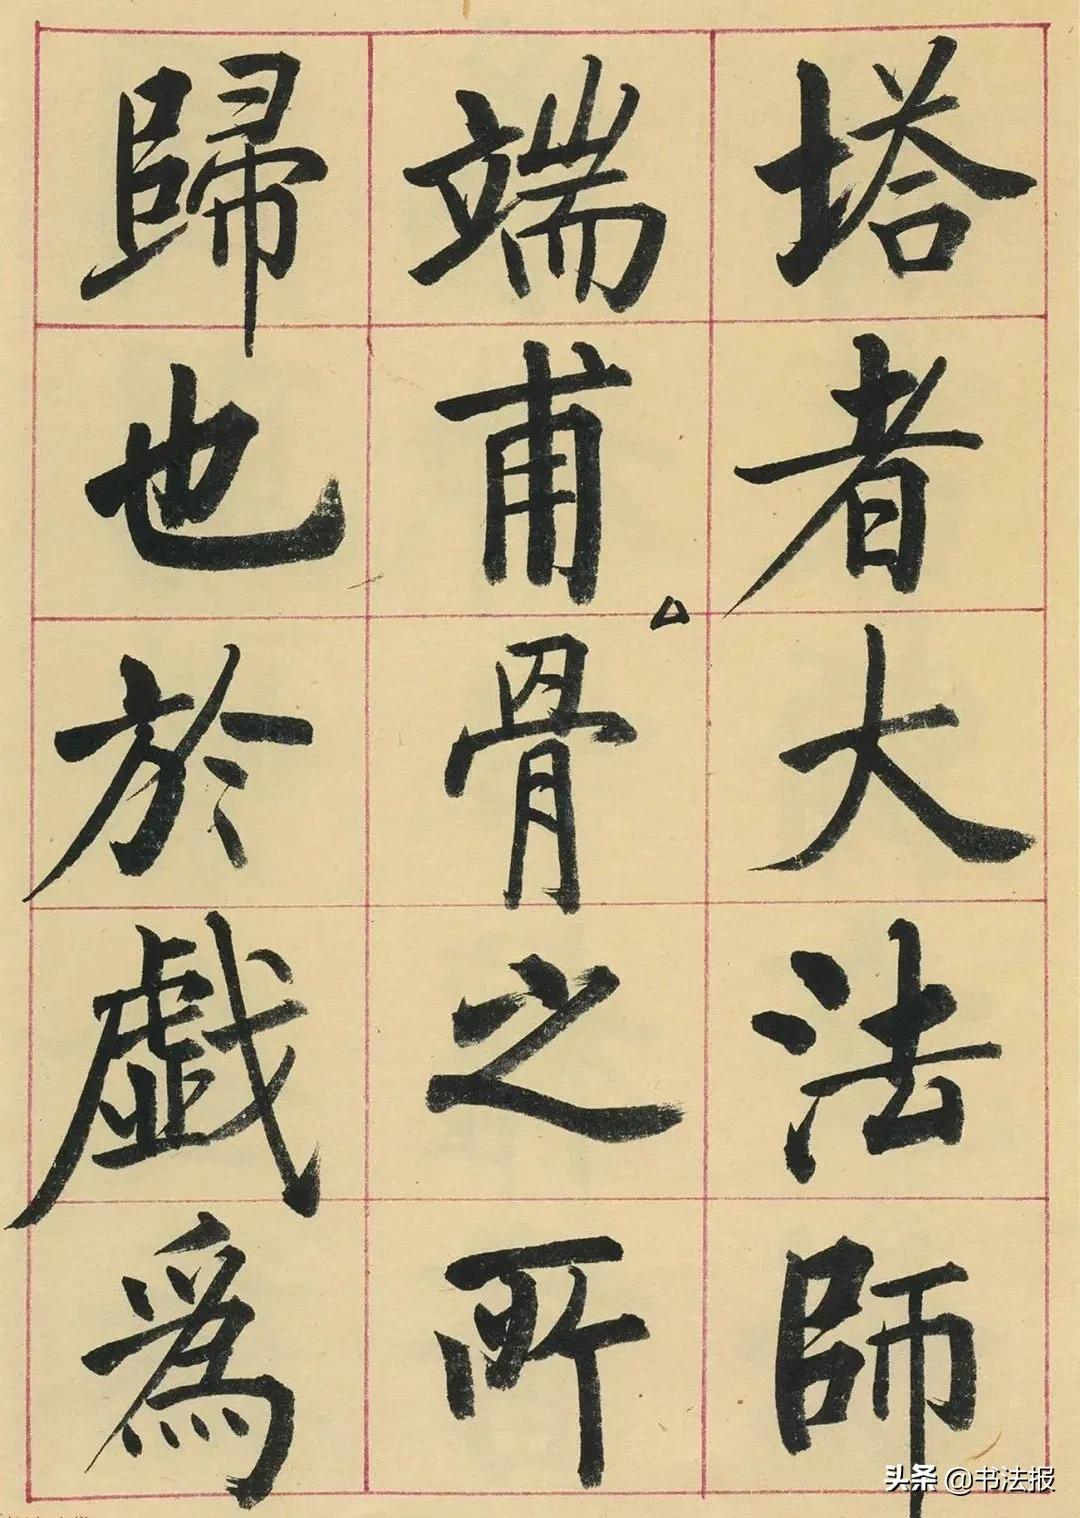 塔者大法師
端甫骨之所
歸也於戲為
头条 @书法报